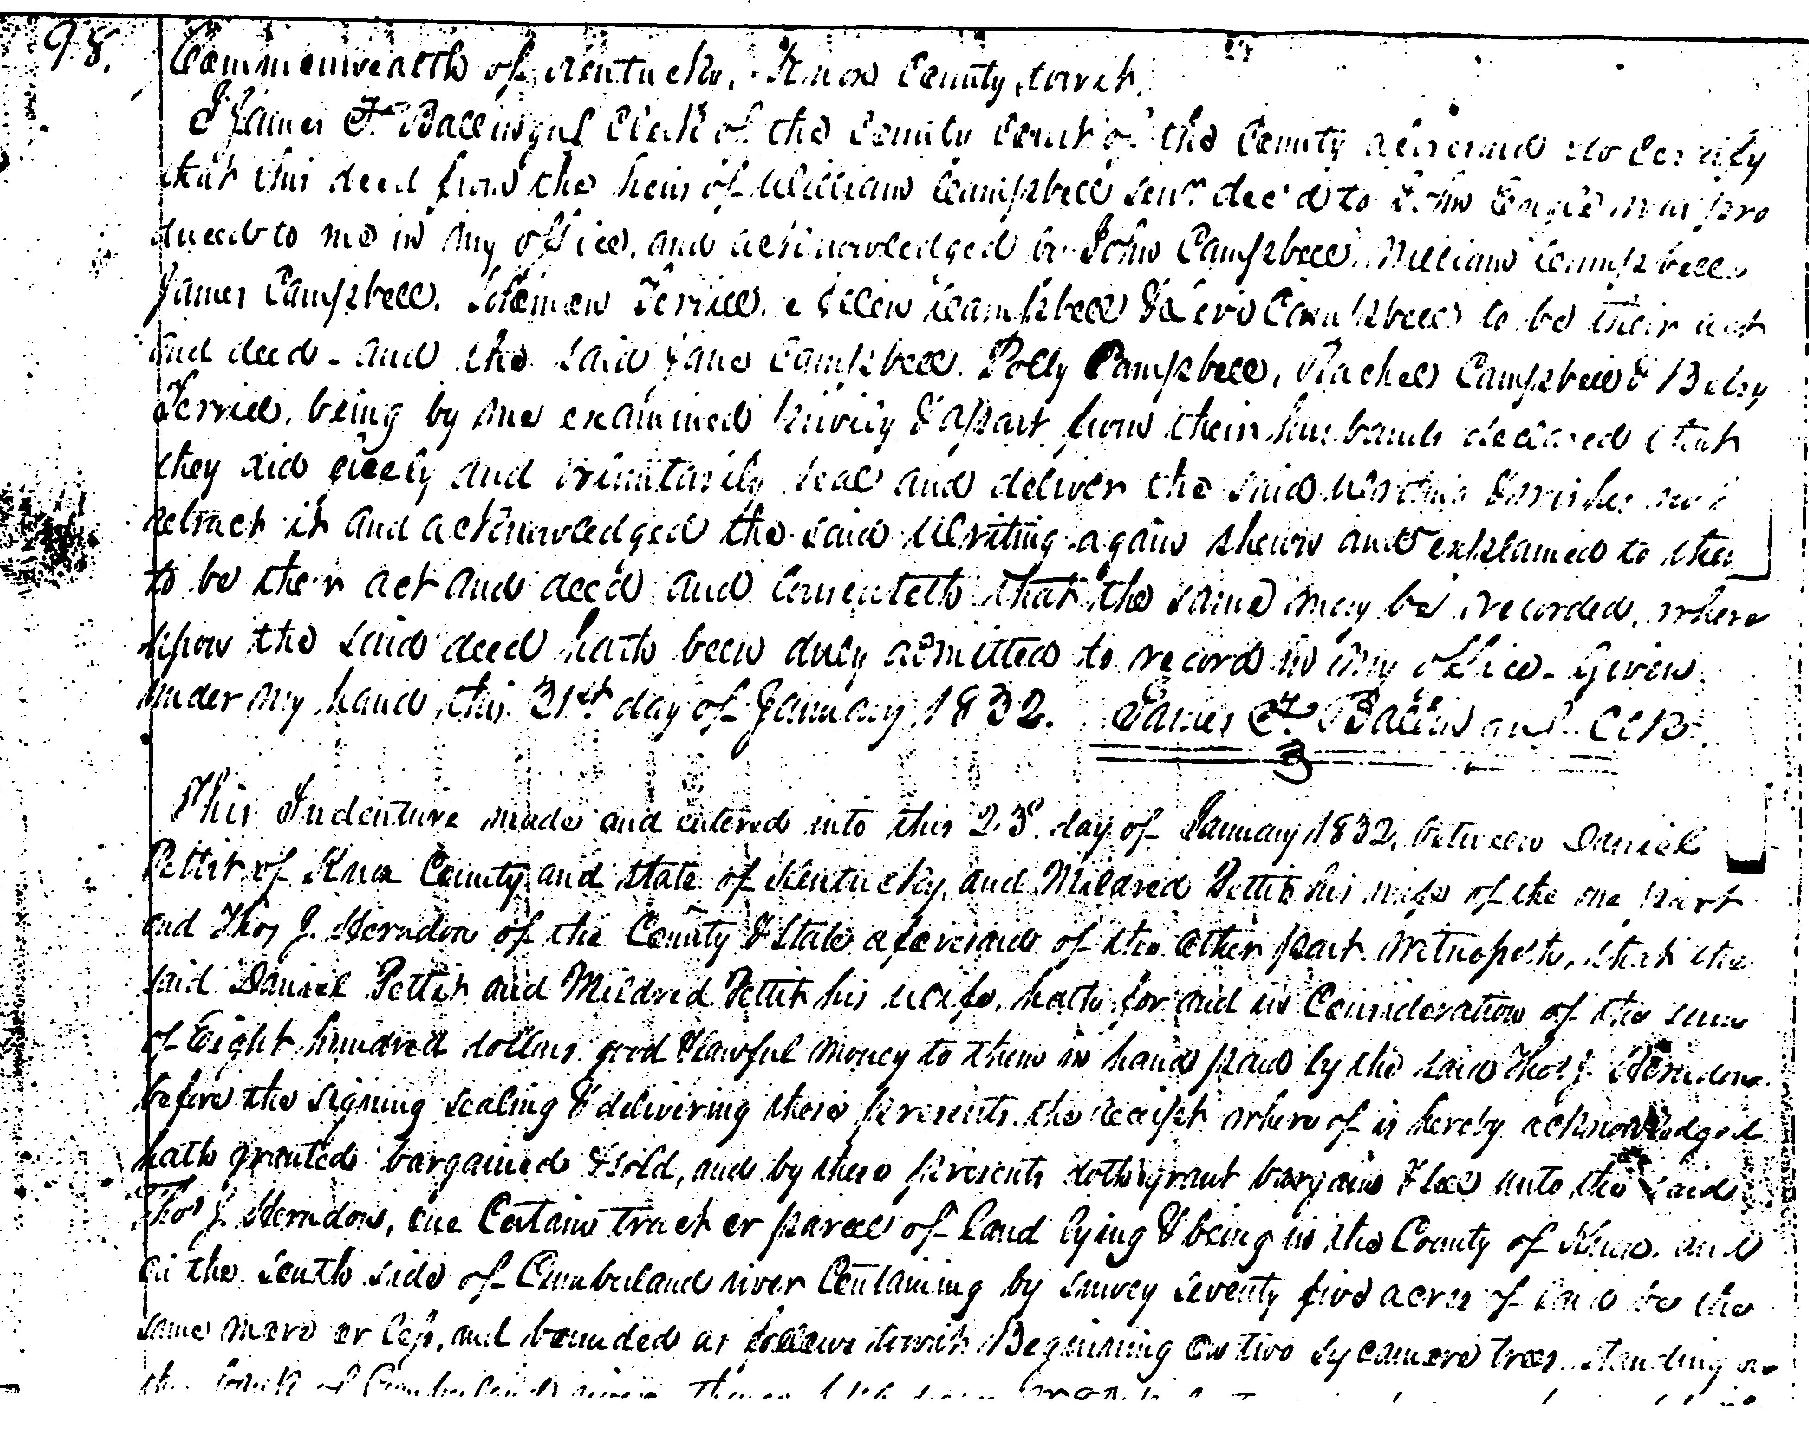 98.
Commonwealth of Kentucky, Knox County, towit,
I James F. Ballingal Clerk of the County Court of the County aforesaid do Certify
that this deed from the heirs of William Campbell senr. dec'd to John was pro
duced to me in my office, and acknowledged by John Campbell, William Campbell
James Campbell, Solomon Terrill, Campbell & Levi Campbell to be their act
and deed - and the said Jane Campbell, Polly Campbell, Rachel Campbell & Betsy
Terrill, being by me examined privily & apart from their husbands declared that
they did freely and voluntarily seal and deliver the said writing & wishes not
retract it and acknowledged the said Writing again shewn and explained to them
to be their act and deed and Consenteth that the same may be recorded, where
upon the said deed hath been duly admitted to record in my office. Given
under my hand this 31st day of January 1832. James F. Ballingal
This Indenture made and entered into this 23d. day of January 1832, between Daniel
Pettit of Knox County and State of Kentucky, and Mildred Pettit his wife of the one part
and Thos J. Herndon of the County & State aforesaid of the other part Witnesseth, that the
said Daniel Pettit and Mildred Pettit his wife, hath for and in Consideration of the sum
of Eight hundred dollars good & lawful money to them in hand paid by the said Thos J. Herndon
before the signing sealing & delivering these presents the receipt where of is hereby acknowledged
hath granted bargained & sold, and by these presents doth grant bargain & sell unto the said
Thos J. Herndon, one Certain tract or parcel of land lying & being in the County of Knox and
on the South side of Cumberland river Containing by survey Seventy five acres of land be the
same more or less, and bounded as follows towit Beginning on two sycamore trees standing on
the bank of Cumberland river